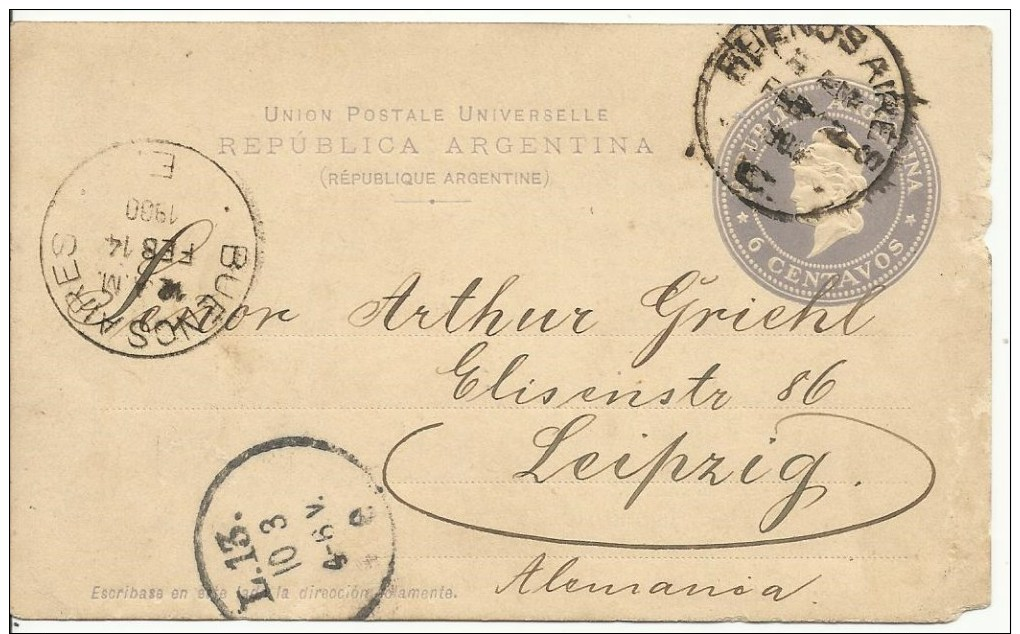 UNION POSTALE UNIVERSELLE
REPÚBLICA ARGENTINA
(RÉPUBLIQUE ARGENTINE)
BUENOS AIRES
REPUBLICA ARGENTINA
* 6 CENTAVOS *
BUENOS AIRES
FEB 14
1900
E
Señor Arthur Griehl
Elisenstr 86
Leipzig.
Alemania
L.13.
10 3
Escríbase en este lado la dirección solamente.